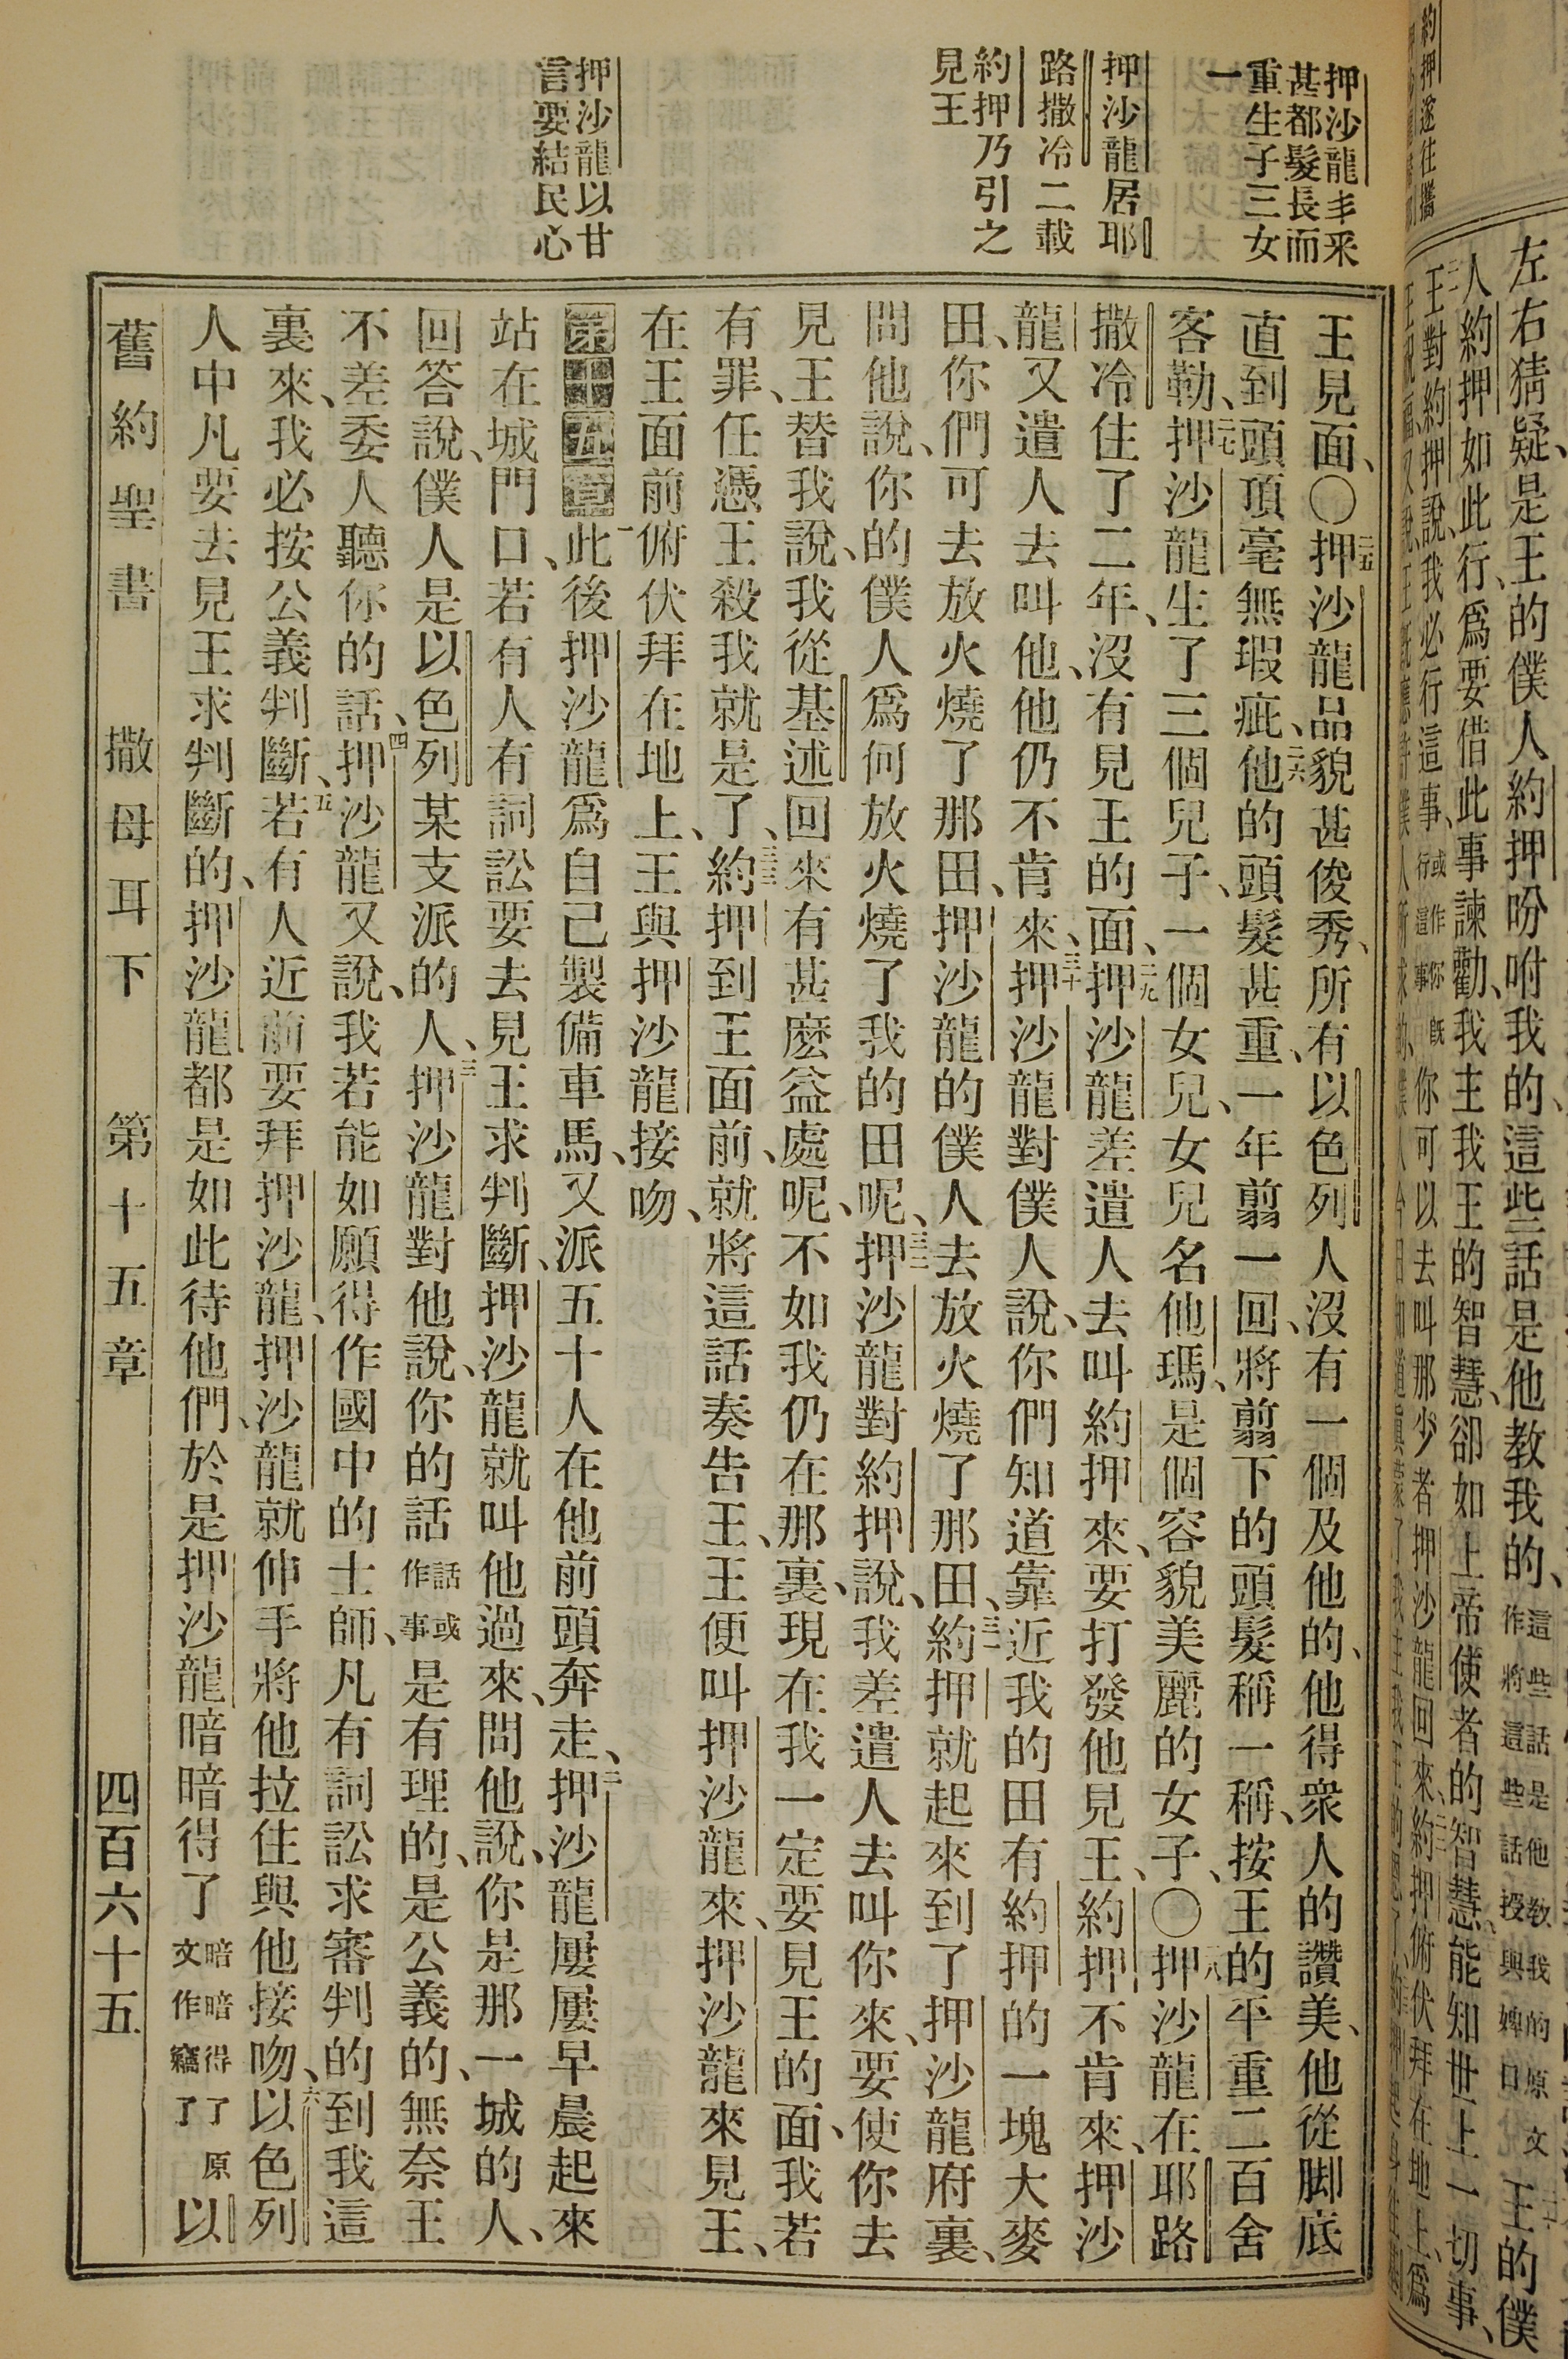 左右猜疑、是王的僕人約押吩咐我的、這些話是他教我的、這些話是他教我的原文作將這些話授與婢口王的僕
人約押如此行、爲要借此事諫勸、我主我王的智慧、卻如上帝使者的智慧、能知世上一切事、
王對約押說、我必行這事、或作你旣行這事你可以去叫那少者押沙龍回來、約押俯伏拜在地上、爲
押沙龍丰采
甚都髮長而
重生子三女
一
押沙龍居耶
路撒冷二載
約押乃引之
見王
押沙龍以甘
言要結民心
王見面、〇二五押沙龍品貌甚俊秀、所有以色列人沒有一個及他的、他得衆人的讚美、他從脚底
直到頭頂毫無瑕疵、二六他的頭髮甚重、一年翦一回、將翦下的頭髮稱一稱、按王的平重二百舍
客勒、二七押沙龍生了三個兒子、一個女兒、女兒名他瑪、是個容貌美麗的女子、〇二八押沙龍在耶路
撒冷住了二年、沒有見王的面、二九押沙龍差遣人去叫約押來、要打發他見王、約押不肯來、押沙
龍又遣人去叫他、他仍不肯來、三十押沙龍對僕人說、你們知道靠近我的田有約押的一塊大麥
田、你們可去放火燒了那田、押沙龍的僕人去放火燒了那田、三一約押就起來到了押沙龍府裏、
問他說、你的僕人爲何放火燒了我的田呢、三二押沙龍對約押說、我差遣人去叫你來、要使你去
見王替我說、我從基述回來有甚麽益處呢、不如我仍在那裏、現在我一定要見王的面、我若
有罪、任憑王殺我就是了、三三約押到王面前、就將這話奏告王、王便叫押沙龍來、押沙龍來見王、
在王面前俯伏拜在地上、王與押沙龍接吻、
第十五章一此後押沙龍爲自己製備車馬、又派五十人在他前頭奔走、二押沙龍屢屢早晨起來
站在城門口、若有人有詞訟要去見王求判斷、押沙龍就叫他過來、問他說、你是那一城的人、
回答說、僕人是以色列某支派的人、三押沙龍對他說、你的話話或作事是有理的、是公義的、無奈王
不差委人聽你的話、四押沙龍又說、我若能如願得作國中的士師、凡有詞訟求審判的到我這
裏來、我必按公義判斷、五若有人近前要拜押沙龍、押沙龍就伸手將他拉住與他接吻、六以色列
人中凡要去見王求判斷的、押沙龍都是如此待他們、於是押沙龍暗暗得了暗暗得了原文作竊了以
舊約聖書 撒母耳下 第十五章 四百六十五